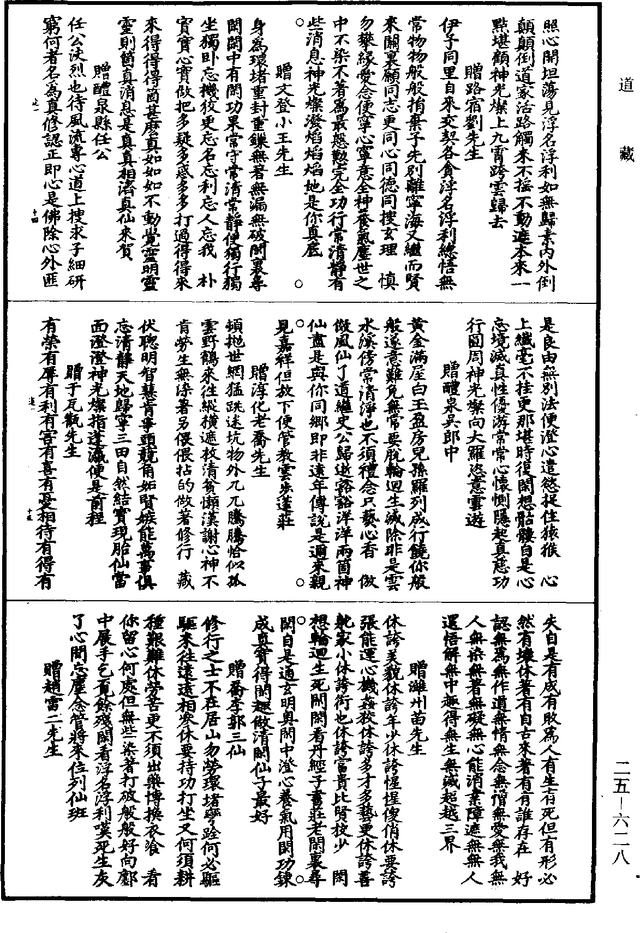 道藏
照心開坦蕩見浮名浮利如無歸素內外倒
顛顛倒道家活路觸來不搖不動遮本來一
點堪顧神光燦上九霄跨雲歸去
贈路宿劉先生
伊予同里自來交契各貪浮名浮利總悟無
常物物般般捐棄予先別離寧海又繼而賢
來關裏顧同志更同心同德同搜玄理 慎
勿攀緣愛念便寧心寧意全神養氣塵世之
中不染不著爲最慇懃完全功行常清靜有
些消息神光燦澄焰焰焰地是你真底
贈文登小王先生
身爲環堵重封重鏁無著無漏無破閑裏尋
閑閑中有閑功果常守常清常靜使獨行獨
坐獨卧忘機狡更忘名忘利忘人忘我 朴
實實心實做把多疑多惑多多打過得得來
來得得得箇甚麽真如如如不動覺靈明靈
靈則箇真消息是真真相濟真仙來賀
贈醴泉縣任公
任公決烈也待風流專心道上搜求子細研
窮何者名爲真修認正即心是佛除心外匪
是良由無別法便澄心遣慾捉住猿猴 心
上纖毫不挂更那堪時復閑想骷髏自是心
忘境滅真性優游常常心懷惻隱起真慈功
行圓周神光燦向大羅恣意雲遊
贈醴泉吳郎中
黃金滿屋白玉盈房兒孫羅列成行饒你般
般遂意難免無常要脫輪迴生滅除非是雲
水溪傍常清淨也不須禮念只藝心香 倣
傚風仙了道繼史公歸逝豁豁洋洋兩箇神
仙盡是與你同鄉即非遠年傳說是邇來親
見嘉祥但放下便管教雲步蓬莊
贈淳化老喬先生
頓拋世網猛跳迷坑物外兀兀騰騰恰似孤
雲野鶴來往縱橫遮枚清貧懶漢謝心神不
肯勞生無染著另偎偎拈的做著修行 藏
伏聰明智慧肯事頭競角如賢嫉能萬事俱
忘清靜天地歸寧三田自然結實現胎仙當
面澄澄神光燦指蓬瀛便是前程
贈于瓦甑先生
有榮有辱有利有害有喜有憂相待有得有
失自是有成有敗爲人有生有死但有形必
然有壞休著有自古來著有有誰存在 好
認無爲無作道無情無念無憎無愛無我無
人無染無著無礙無心能消業障遮無無人
還悟解無中趣得無生無滅超越三界
贈濰州苗先生
休誇美貌休誇年少休誇惺惺俊俏休要誇
張能運心機姦狡休誇多才多藝更休誇善
軌家小休誇術也休誇富貴比肩校少 閑
想輪迴生死閑閑看丹經子書莊老閑裏尋
閑自是通玄明奥閑中澄心養氣用閑功鍊
成真寶得閑趣做清閑仙子最好
贈喬李郭三仙
修行之士不在居山勿勞環堵孯跧何必驅
驅來往遠遠相參休要持功打坐又何須耕
種艱難休勞苦更不須出藥博換衣飡 看
你留心何處但無些染著打破般般好向鄽
中展手乞覓餘殘閑看浮名浮利嘆死生灰
了心閑忘塵念管將來位列仙班
贈趙雷二先生
二五－六二八